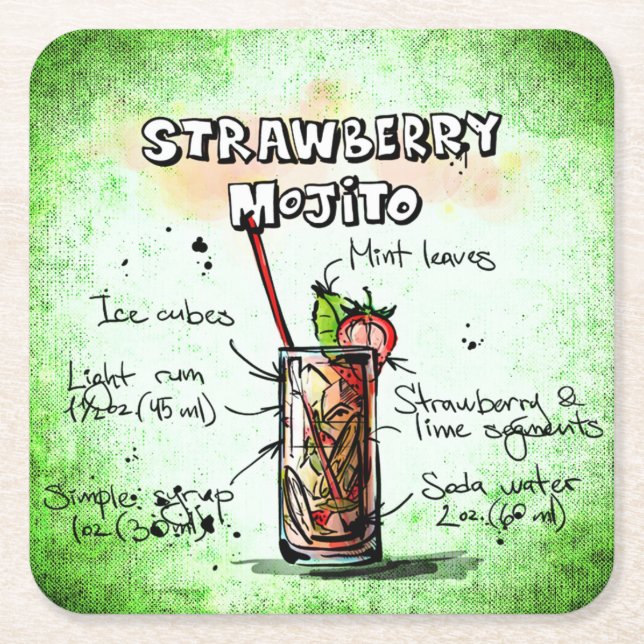 STRAWBERRY
MOJITO
Mint leaves
Ice cubes
Light rum
1 1/2 oz.(45 ml)
Strawberry &
lime segments
Simple syrup
1oz.(30ml)
Soda water
2oz.(60 ml)